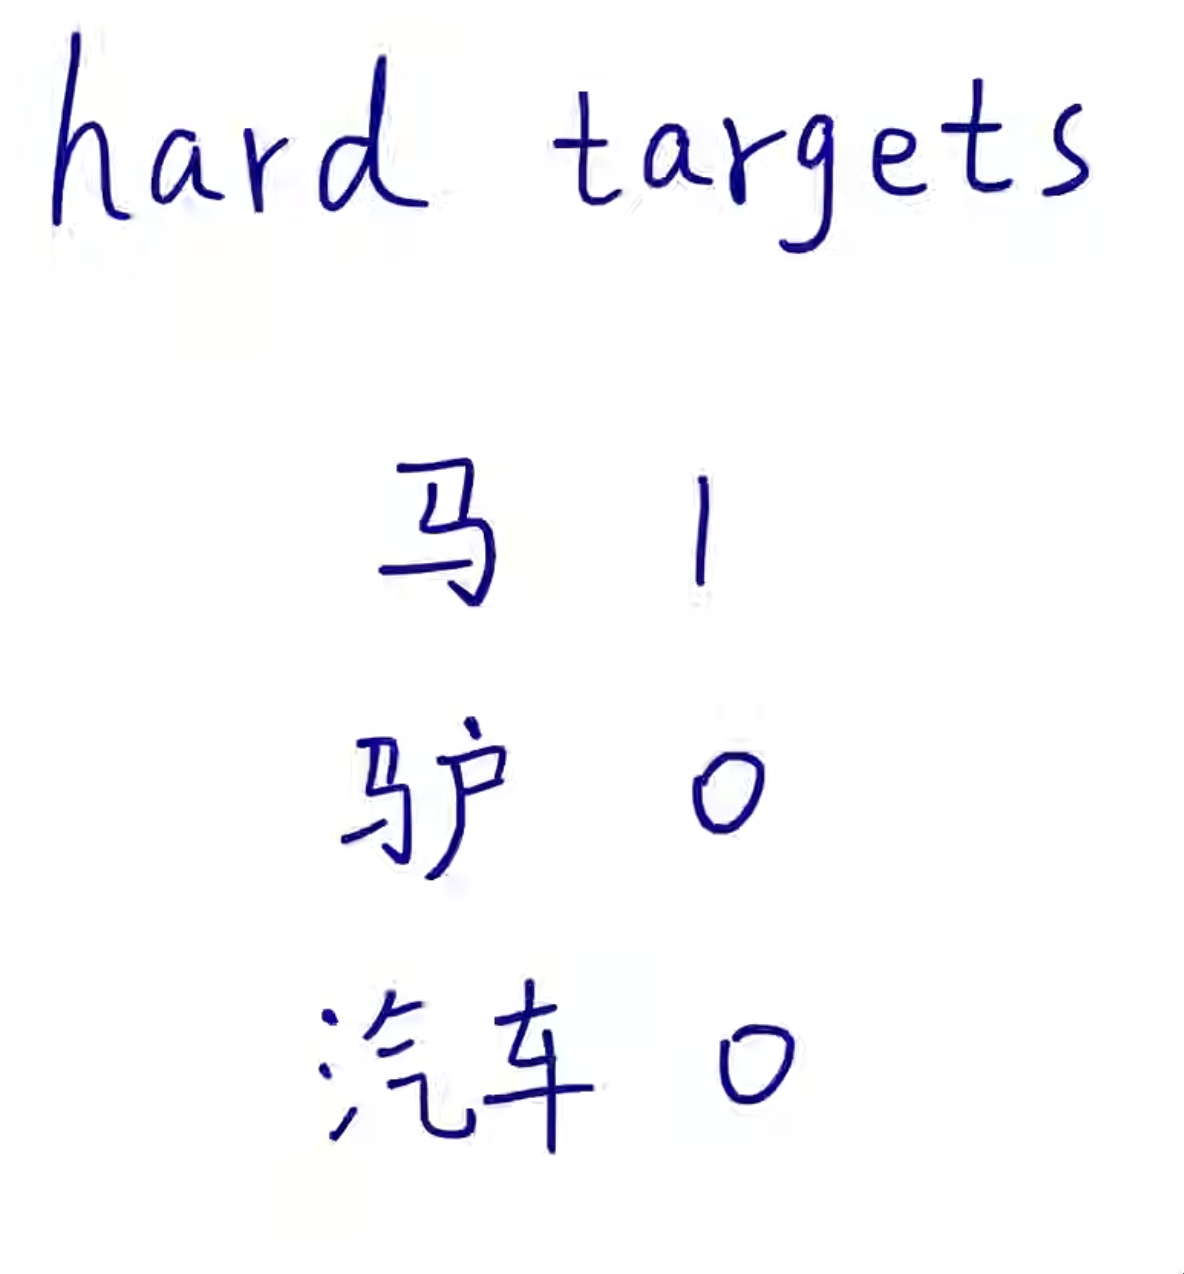 hard targets
马 1
驴 0
汽车 0